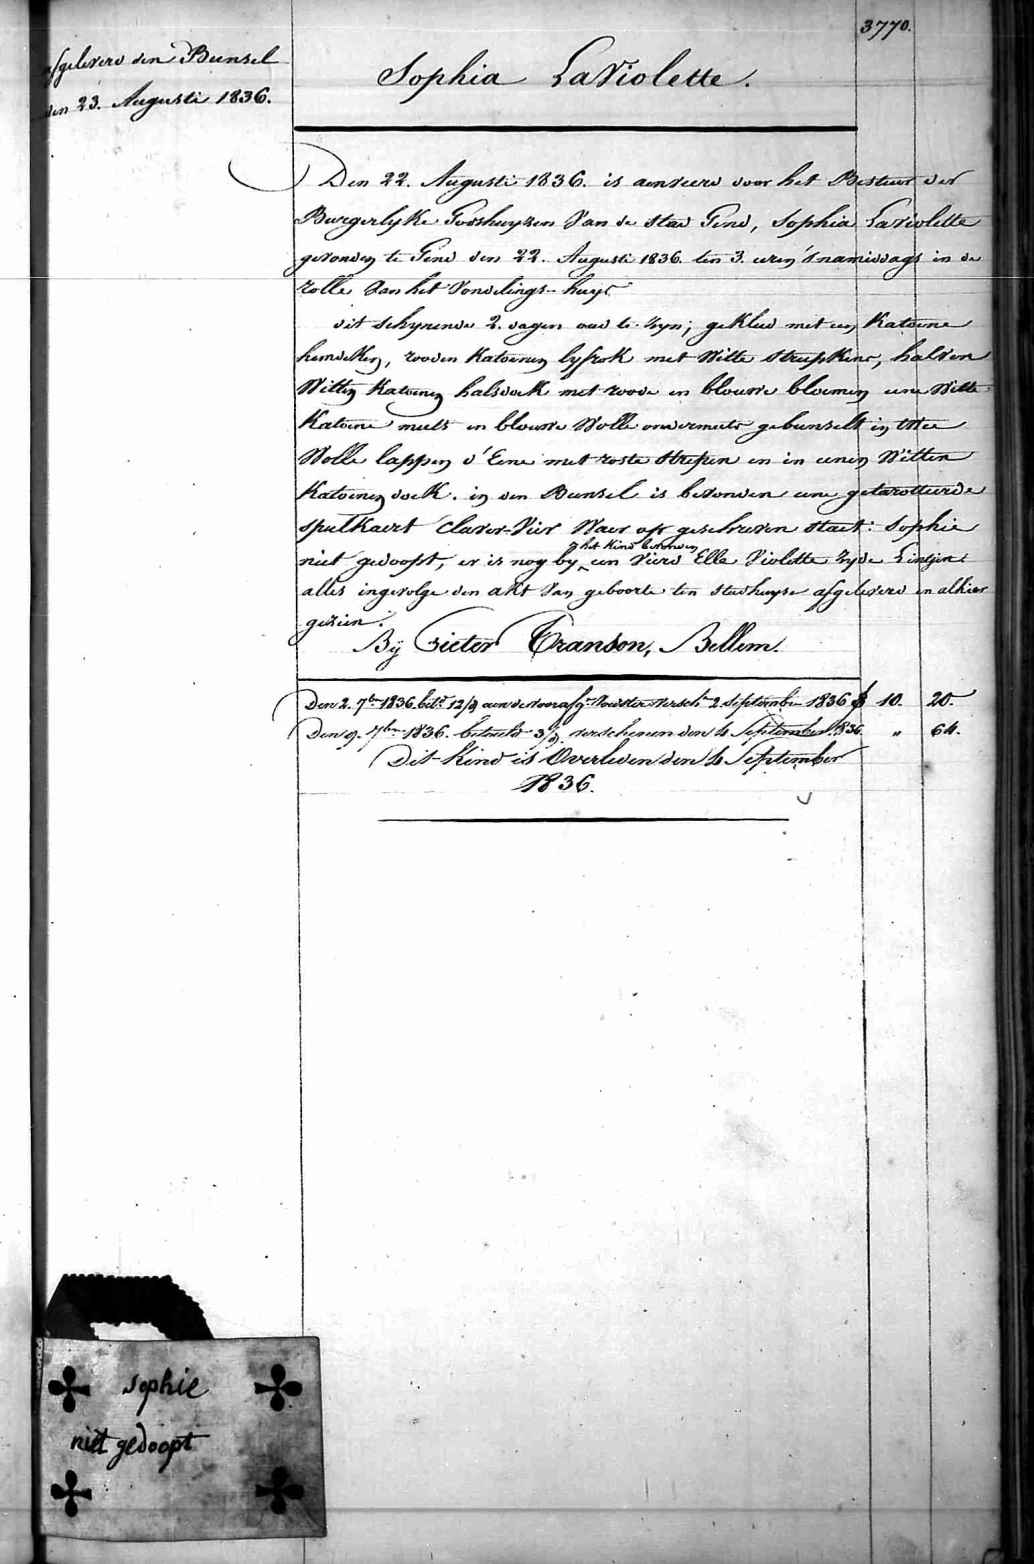 3770.
afgeleverd den Bunsel
den 23. Augusti 1836.
Sophia LaViolette.
Den 22. Augusti 1836. is aenveerd door het Bestuur der
Burgerlyke Godshuyzen Van de Stad Gend, Sophia Laviolette
gevonden te Gend den 22. Augusti 1836 ten 3. uren 's namiddags in de
rolle Van het Vondelings-huys
dit schynende 2. dagen oud te zyn; gekleed met een Katoene
hemdeken, rooden Katoenen lyfrok met Witte streepkens, halven
Witten Katoenen halsdoek met roode en blouwe bloemen eene Witte
Katoene muts en blouwe Wolle ondermuts gebunselt in twee
Wolle lappen d'Eene met roste strepen en in eenen Witten
Katoenen doek. in den Bunsel is bevonden eene getarotteerde
speelkaert Claver-Vier Waer op geschreven staet: Sophie
niet gedoopt, er is nog by het Kind bevonden een Vierd Elle Violette zyde Lintjen
alles ingevolge den akt Van geboorte ten stadhuyse afgeleverd en alhier
gezien.
By Pieter Transon, Bellem.
Den 2. 7br 1836. bet. 12/9 aen de Voedster versch. 2 September 1836 10. 20.
Den 9. 7ber 1836. betaeld 3/9. verschenen den 4 September 1836. " 64.
Dit Kind is Overleden den 4 September
1836.
sophie
niet gedoopt